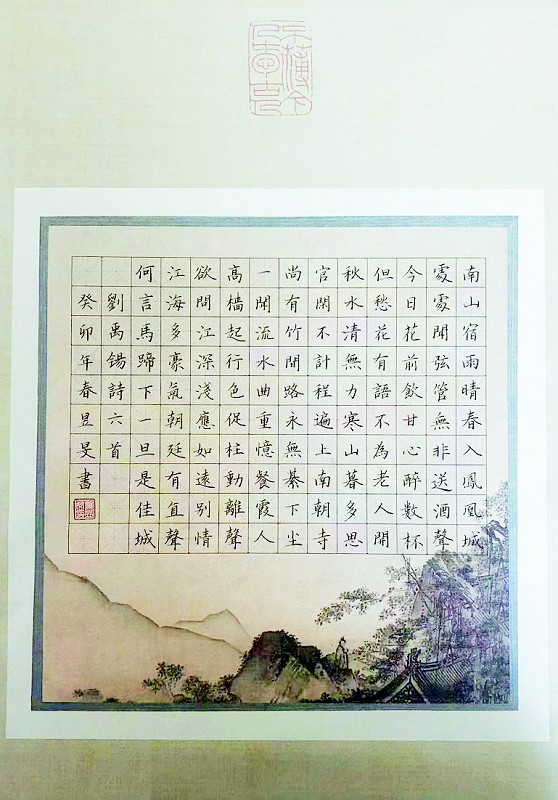 南山宿雨晴春入鳳凰城
處處聞弦管無非送酒聲
今日花前飲甘心醉數杯
但愁花有語不為老人開
秋水清無力寒山暮多思
官閑不計程遍上南朝寺
尚有竹間路永無綦下尘
一聞流水曲重憶餐霞人
高檣起行色促柱動離聲
欲問江深淺應如遠別情
江海多豪氣朝廷有直聲
何言馬蹄下一旦是佳城
劉禹錫詩六首
癸卯年春昱旻書